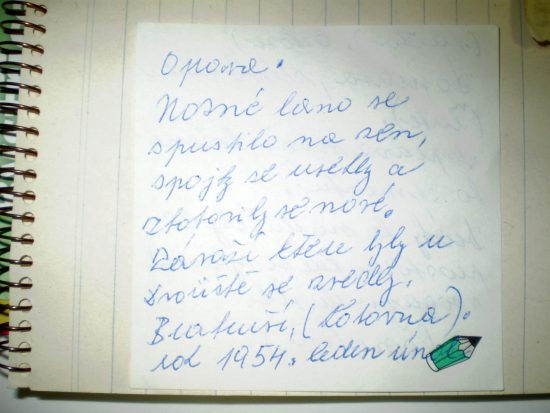 Oprava.
Nosné lano se
spustilo na zem,
spojky se usekly a
zhotovily se nové.
Závaží které byly u
se zvedly.
Bratkuši, (Kotovna).
rok 1954. leden ún